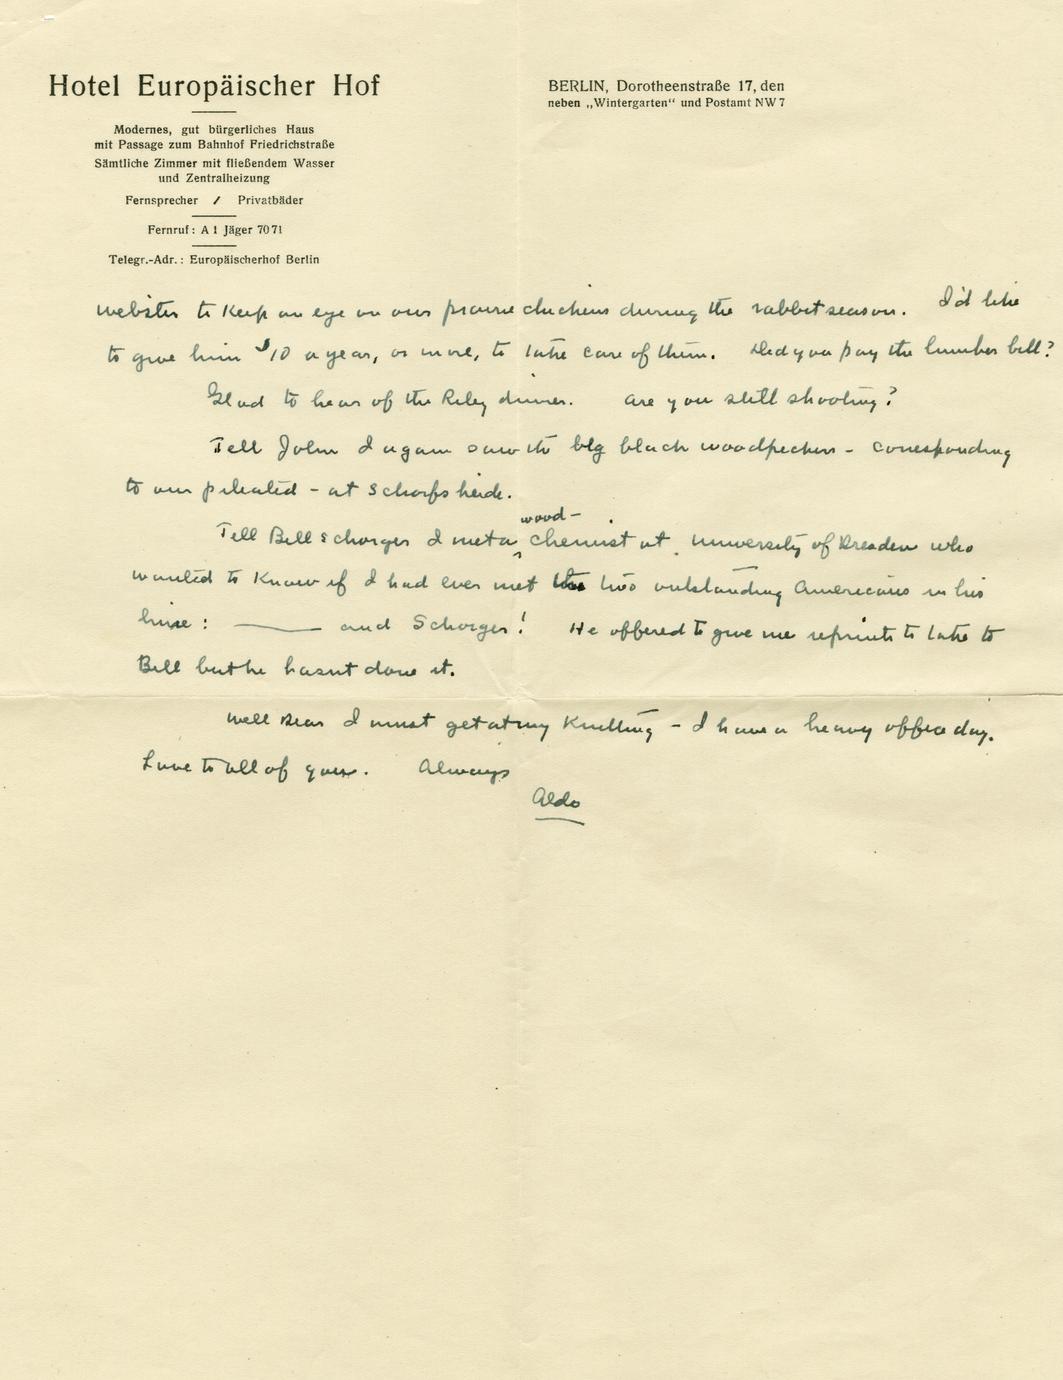 Hotel Europäischer Hof
Modernes, gut bürgerliches Haus
mit Passage zum Bahnhof Friedrichstraße
Sämtliche Zimmer mit fließendem Wasser
und Zentralheizung
Fernsprecher / Privatbäder
Fernruf: A 1 Jäger 7071
Telegr.-Adr.: Europäischerhof Berlin
BERLIN, Dorotheenstraße 17, den
neben „Wintergarten“ und Postamt NW 7
Webster to keep an eye on our prairie chickens during the rabbit season. I'd like
to give him $10 a year, or more, to take care of them. Did you pay the lumber bill?
Glad to hear of the Riley dinner. Are you still shooting?
Tell John I again saw the big black woodpecker - corresponding
to our pileated - at Schorfsheide.
wood-
Tell Bill Schorger I met a chemist at University of Dresden who
wanted to know if I had ever met the two outstanding Americans in his
line: ——— and Schorger! He offered to give me reprints to take to
Bill but he hasn't done it.
Well Dear I must get at my knitting - I have a heavy office day.
Love to all of you. Always
Aldo